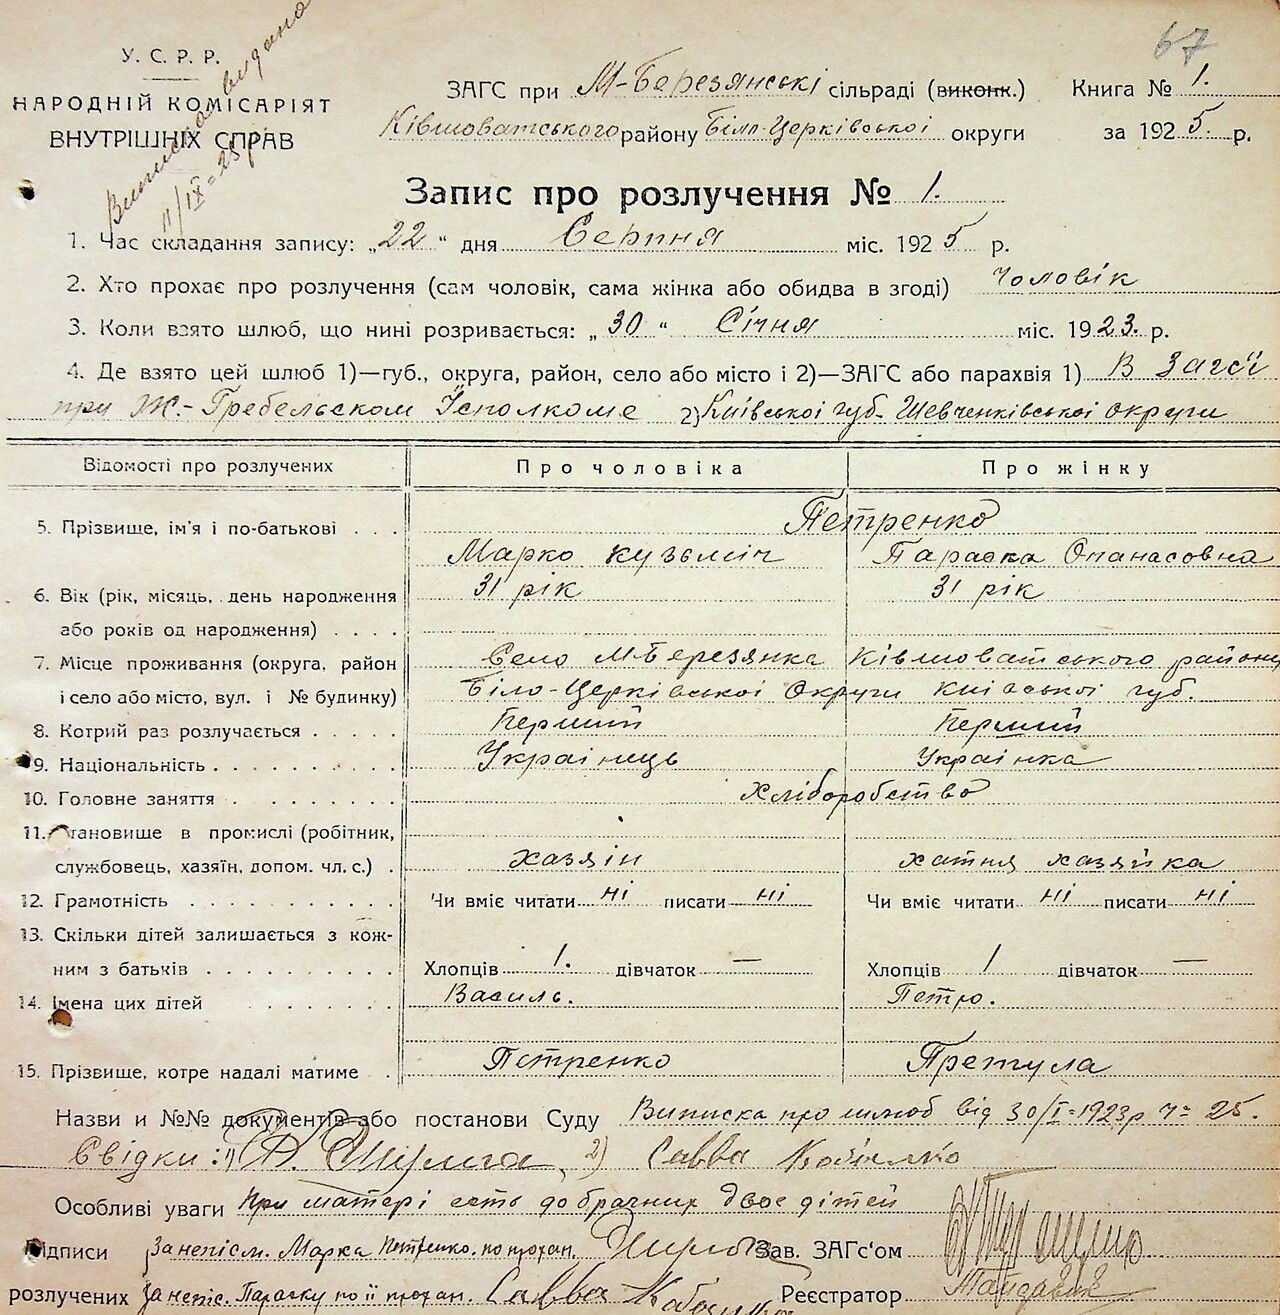 67
Виписка видана
11/IX-25 р.
У. С. Р. Р.
НАРОДНІЙ КОМІСАРІЯТ
ВНУТРІШНІХ СПРАВ
ЗАГС при М-Березянські сільраді (виконк.) Книга № 1.
Ківшоватського району Біло-Церківської округи за 1925. р.
Запис про розлучення № 1.
1. Час складання запису: „22“ дня Серпня міс. 1925 р.
2. Хто прохає про розлучення (сам чоловік, сама жінка або обидва в згоді) Чоловік
3. Коли взято шлюб, що нині розривається: „30“ Січня міс. 1923. р.
4. Де взято цей шлюб 1)—губ., округа, район, село або місто і 2)—ЗАГС або парахвія 1) В Загсі
при Ж.-Гребельском Ісполкоме 2) Київської губ. Шевченківської округи
Відомості про розлучених Про чоловіка Про жінку
5. Прізвище, ім'я і по-батькові . . . Петренко
Марко Кузьміч Параска Опанасовна
6. Вік (рік, місяць, день народження 31 рік 31 рік
або років од народження) . . . .
7. Місце проживання (округа, район Село М-Березянка Ківшоватського району
і село або місто, вул. і № будинку) Біло-Церківської Округи Київської губ.
8. Котрий раз розлучається . . . . Перший Перший
9. Національність . . . . . . . . . Українець Українка
10. Головне заняття . . . . . . . Хліборобство
11. Становище в промислі (робітник,
службовець, хазяїн, допом. чл. с.) . хазяін хатня хазяйка
12. Грамотність . . . . . . . . . . Чи вміє читати ні писати ні Чи вміє читати ні писати ні
13. Скільки дітей залишається з кож-
ним з батьків . . . . . . . . . . Хлопців 1. дівчаток — Хлопців 1 дівчаток —
14. Імена цих дітей . . . . . . . Василь. Петро.
15. Прізвище, котре надалі матиме . Петренко Претула
Назви и №№ документів або постанови Суду Виписка про шлюб від 30/I-1923р ч= 25.
Свідки: 1) 2) Савва
Особливі уваги При матері есть добрачних двое дітей
Підписи За непісм. Марка Петренко. по прохан. Зав. ЗАГс'ом
розлучених За непіс. Параску по її прохан. Савва Реєстратор